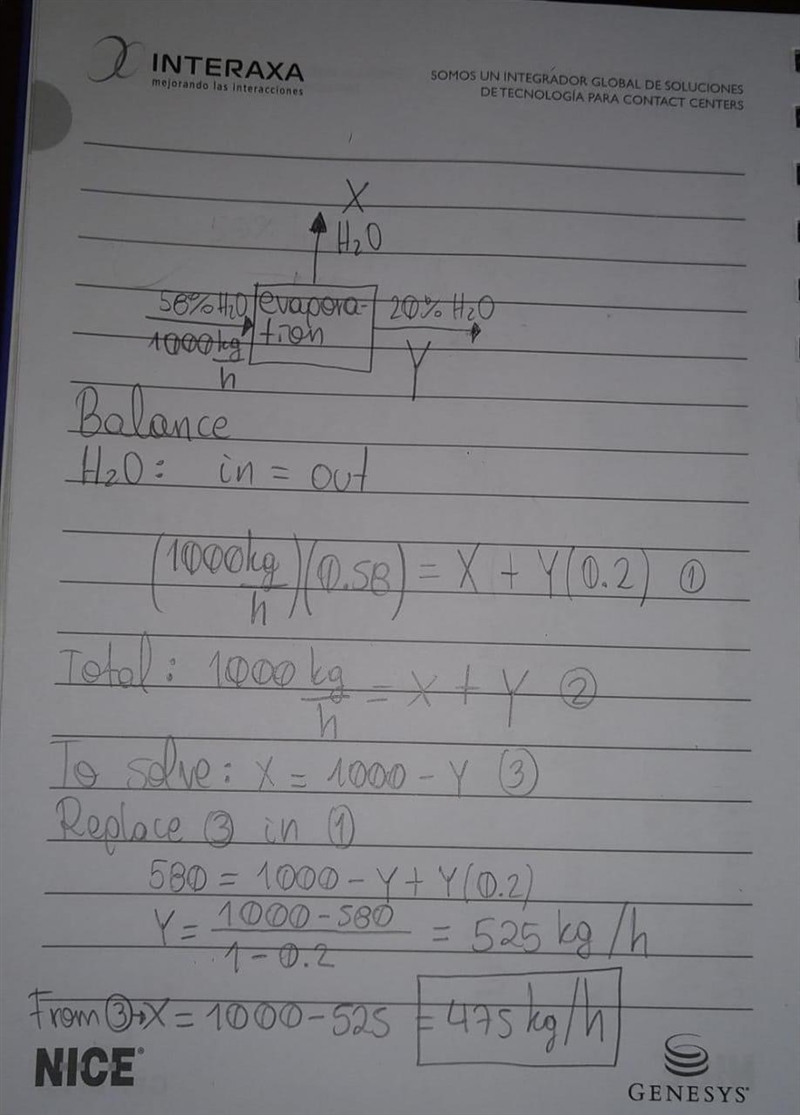 INTERAXA
mejorando las interacciones
SOMOS UN INTEGRADOR GLOBAL DE SOLUCIONES
DE TECNOLOGÍA PARA CONTACT CENTERS
X
H₂O
58% H₂O
1000 kg/h
evapora-
tion
20% H₂O
Y
Balance
H₂O: in = out
(1000 kg/h)(0.58) = X + Y(0.2) ①
Total: 1000 kg/h = X + Y ②
To solve: X = 1000 - Y ③
Replace ③ in ①
580 = 1000 - Y + Y(0.2)
Y = (1000 - 580)/(1 - 0.2) = 525 kg/h
From ③→X = 1000 - 525 = 475 kg/h
NICE
GENESYS